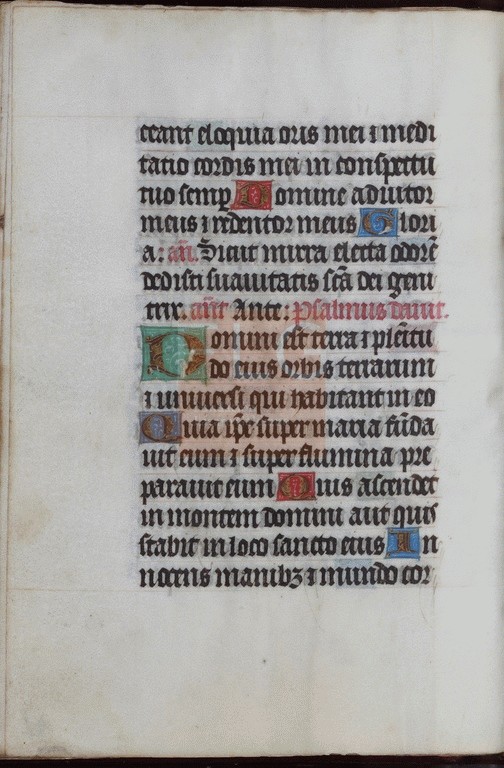 ceant eloquia oris mei ⁊ medi
tatio cordis mei in conspectu
tuo semꝑ Domine adiutor
meus ⁊ redemtor meus Glori
a: añ. Sicut mirra electa odorē
dedisti suavitatis scā dei geni
trix. añt Ante: Psalmus david.
Domini est terra ⁊ plēitu
do eius orbis terrarum
⁊ universi qui habitant in eo
Quia ip̄e super maria fūda
vit eum ⁊ super flumina pre
paravit eum Quis ascendet
in montem domini aut quis
stabit in loco sancto eius In
nocens manibꝫ ⁊ mundo cor